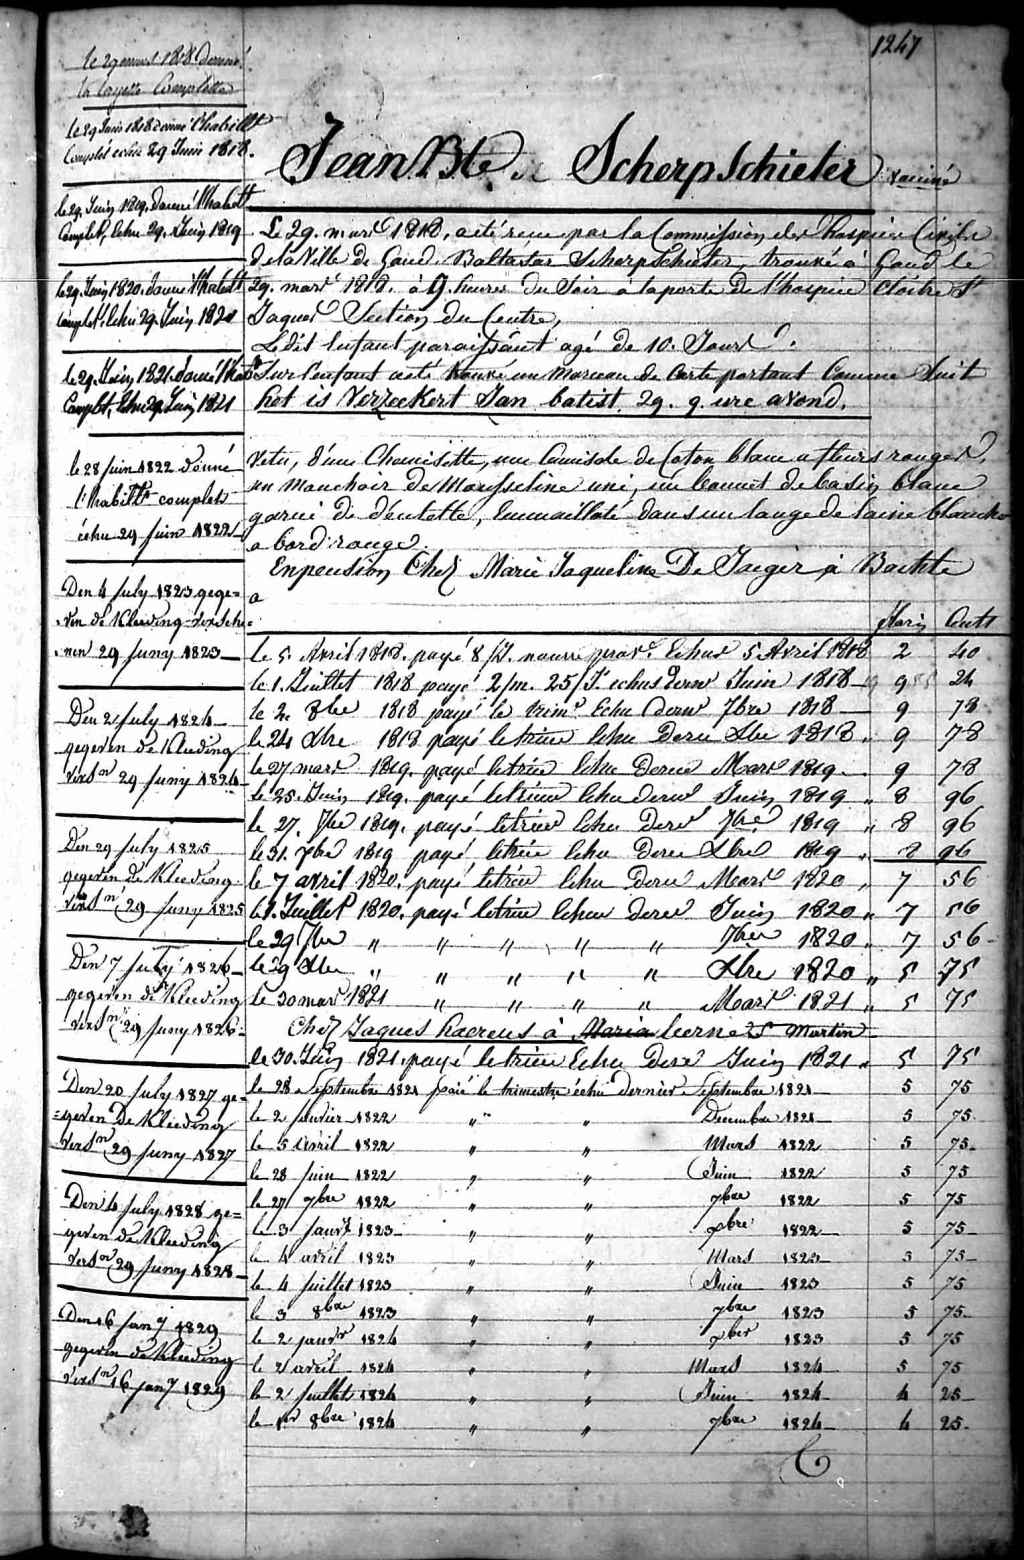 1247
le 29 mars 1818 donné
la layette Complette
le 29 Juin 1818 donné l'habillt
Complet echu 29 Juin 1818.
le 29. Juin 1819. donné l'habillt
Complet, Echu 29. Juin 1819
le 29. Juin 1820. donné l'habillt
Complet, Echu 29. Juin 1820
le 29. Juin 1821. donné l'habt
Complet, Echu 29 Juin 1821
le 28 juin 1822 donné
l'habillt complet
échu 29 juin 1822
Den 4 July 1823 gege=
ven de Kleeding
nen 29 Juny 1823
Den 2 July 1824
gegeven de Kleeding
versn 29 Juny 1824
Den 29 July 1825
gegeven de Kleeding
versn 29 Juny 1825
Den 7 July 1826
gegeven de Kleeding
versn 29 Juny 1826
Den 20 July 1827 ge=
=geven de Kleeding
versn 29 Juny 1827
Den 4 July 1828 ge=
geven de Kleeding
versn 29 Juny 1828
Den 16 Jany 1829
gegeven de Kleeding
versn 16 Jany 1829
Jean Bte Scherpschieter vacciné
Le 29. mars 1818, a été reçu par la Commission des hospices Civils
de la Ville de Gand Baltasar Scherpschieter, trouvé à Gand le
29. mars 1818. à 9. heures du Soir à la porte de l'hospice Cloitre St
Jaques Section du Centre,
Ledit Enfant paraissant agé de 10. Jours.
Sur l'enfant a été trouvé un morceau de Carte portant Comme Suit
hot is Verzeekert Jan batist. 29. 9. ure avond.
Vetu, d'une Chemisette, une Camisole de Coton blanc a fleurs rouges,
un mouchoir de Mousseline uni, un bonnet de basin blanc
garni de dentelle, Emmailloté dans un lange de laine blanche
a bord rouge.
En pension Chez Marie Jaqueline De Jaeger à Bachte
a
florin Cents
le 5. Avril 1818. payé 8/J. nourre provre Echus 5 Avril 1818 2 40
le 1. Juillet 1818 payé 2/m. 25/Js echus derne Juin 1818 9 24
le 2. 8bre 1818 payé le trimre Echu derne 7bre 1818 9 78
le 24 Xbre 1818 payé le trim Echu derne Xbre 1818 " 9 78
le 27 mars 1819. payé le trim Echu derne Mars 1819 9 78
le 25. Juin 1819. payé le trim echu derne Juin 1819 " 8 96
le 27. 7bre 1819. payé le trim Echu derne 7bre 1819 " 8 96
le 31. Xbre 1819 payé le trim Echu derne Xbre 1819 " 8 96
le 7 avril 1820. payé le trim Echu derne Mars 1820 " 7 56
le 1. Juillet 1820. payé le trim Echu derne Juin 1820 " 7 56
le 29 7bre " " " " " 7bre 1820 " 7 56
le 29 Xbre " " " " " Xbre 1820 " 5 75
le 30 mars 1821 " " " " Mars 1821 " 5 75
Chez Jaques haerens à Maria leerne St Martin
le 30. Juin 1821. payé le trim Echu derne Juin 1821 " 5 75
le 28 Septembre 1821 paié le trimestre échu dernier Septembre 1821 5 75
le 2 janvier 1822 " " Decembre 1821 5 75
le 5 avril 1822 " " Mars 1822 5 75
le 28 juin 1822 " " Juin 1822 5 75
le 27 7bre 1822 " " 7bre 1822 5 75
le 3 janvr 1823 " " Xbre 1822 5 75
le 4 avril 1823 " " Mars 1823 5 75
le 4 juillet 1823 " " Juin 1823 5 75
le 3 8bre 1823 " " 7bre 1823 5 75
le 2 janvr 1824 " " Xbre 1823 5 75
le 2 avril 1824 " " Mars 1824 5 75
le 2 juillet 1824 " " Juin 1824 4 25
le 1er 8bre 1824 " " 7bre 1824 4 25